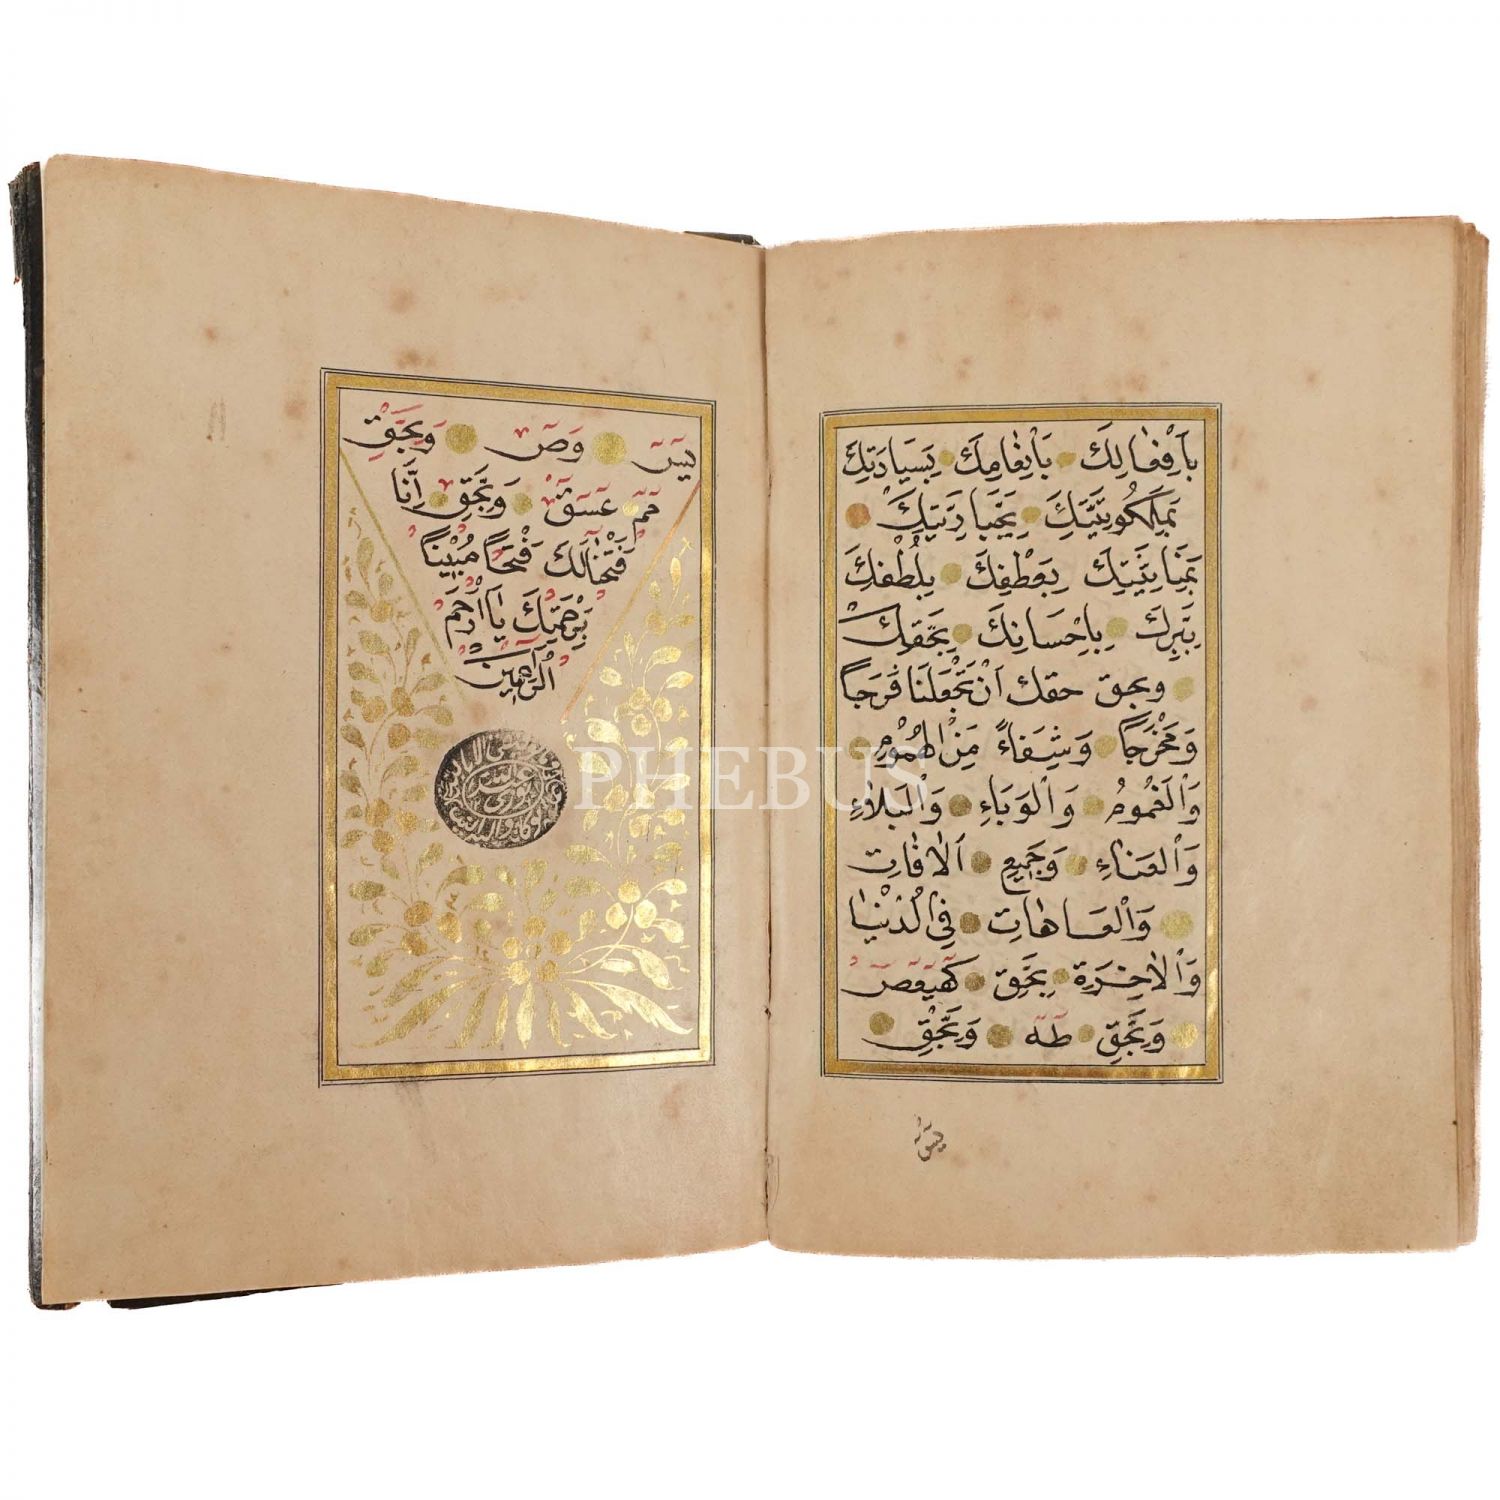 بِاَفْعَالِكَ بِاَنْعَامِكَ بِسِيَادَتِكَ
بِمَلَكُوتِيَّتِكَ بِجَبَّارِيَّتِكَ
بِمَنَّانِيَّتِكَ بِعَطْفِكَ بِلُطْفِكَ
بِبِرِّكَ بِاِحْسَانِكَ بِحَقِّكَ
وبحق حقك اَنْ تَجْعَلَنَا فَرَجاً
وَمَخْرَجاً وَشِفَاءً مِنَ الْهُمُومِ
وَالْغُمُومِ وَالْوَبَاءِ وَالْبَلَاءِ
وَالْعَنَاءِ وَجَمِيعِ الْاٰفَاتِ
وَالْعَاهَاتِ فِي الدُّنْيَا
وَالْاٰخِرَةِ بِحَقِّ كٓهٰيٰعٓصٓ
وَبِحَقِّ طٰهٰ وَبِحَقِّ
يٰسٓ وَصٓ وَبِحَقِّ
حٰمٓ عٓسٓقٓ وَبِحَقِّ اِنَّا
فَتَحْنَا لَكَ فَتْحاً مُبِيناً
بِرَحْمَتِكَ يَا اَرْحَمَ
الرَّاحِمِينَ
PHEBUS